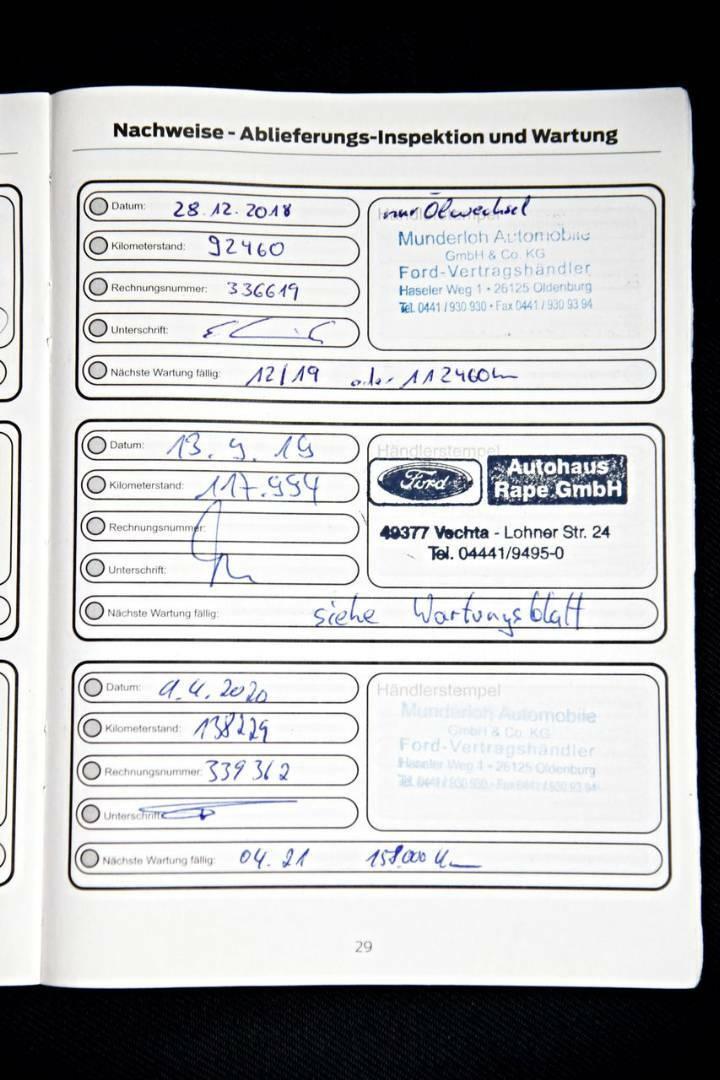 Nachweise - Ablieferungs-Inspektion und Wartung
Datum: 28.12.2018
Kilometerstand: 92460
Rechnungsnummer: 336619
Unterschrift:
nur Ölwechsel
Munderloh Automobile
GmbH & Co. KG
Ford-Vertragshändler
Haseler Weg 1 • 26125 Oldenburg
Tel. 0441 / 930 930 • Fax 0441 / 930 93 94
Nächste Wartung fällig: 12/19 oder 112460km
Datum: 13.9.19
Kilometerstand: 117.994
Rechnungsnummer:
Unterschrift:
Händlerstempel
Ford
Autohaus
Rape GmbH
49377 Vechta - Lohner Str. 24
Tel. 04441/9495-0
Nächste Wartung fällig: siehe Wartungsblatt
Datum: 4.2020
Kilometerstand: 138229
Rechnungsnummer: 339362
Unterschrift:
Händlerstempel
Munderloh Automobile
GmbH & Co. KG
Ford-Vertragshändler
Haseler Weg 1 • 26125 Oldenburg
Tel. 0441 / 930 930 • Fax 0441 / 930 93 94
Nächste Wartung fällig: 04.21 158.000 Km
29